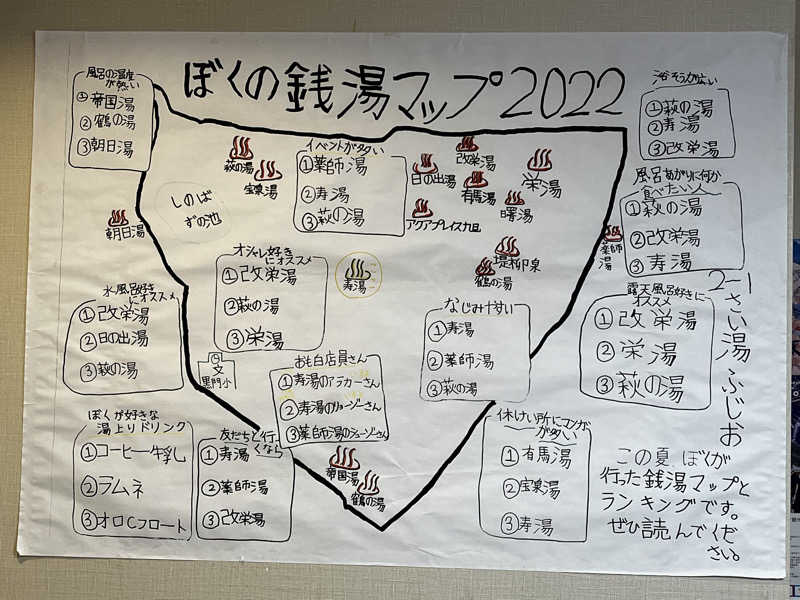 ぼくの銭湯マップ2022
風呂の温度
が熱い
①帝国湯
②鶴の湯
③朝日湯
浴そうが広い
①萩の湯
②寿湯
③改栄湯
イベントが多い
①薬師湯
②寿湯
③萩の湯
萩の湯
宝泉湯
日の出湯
改栄湯
有馬湯
栄湯
曙湯
アクアプレイス旭
しのば
ずの池
朝日湯
堤柳泉
鶴の湯
薬師
湯
寿湯
風呂あがりに何か
食べたい人
①萩の湯
②改栄湯
③寿湯
オシャレ好き
にオススメ
①改栄湯
②萩の湯
③栄湯
水風呂好き
にオススメ
①改栄湯
②日の出湯
③萩の湯
なじみやすい
①寿湯
②薬師湯
③萩の湯
露天風呂好きに
オススメ
①改栄湯
②栄湯
③萩の湯
文
黒門小
おも白店員さん
①寿湯のアラカーさん
②寿湯のジョージーさん
③薬師湯のジョージーさん
ぼくが好きな
湯上りドリンク
①コーヒー牛乳
②ラムネ
③オロCフロート
友だちと行
くなら
①寿湯
②薬師湯
③改栄湯
帝国湯
鶴の湯
休けい所にマンガ
が多い
①有馬湯
②宝泉湯
③寿湯
2-1
さい湯ふじお
この夏ぼくが
行った銭湯マップと
ランキングです。
ぜひ読んでくだ
さい。